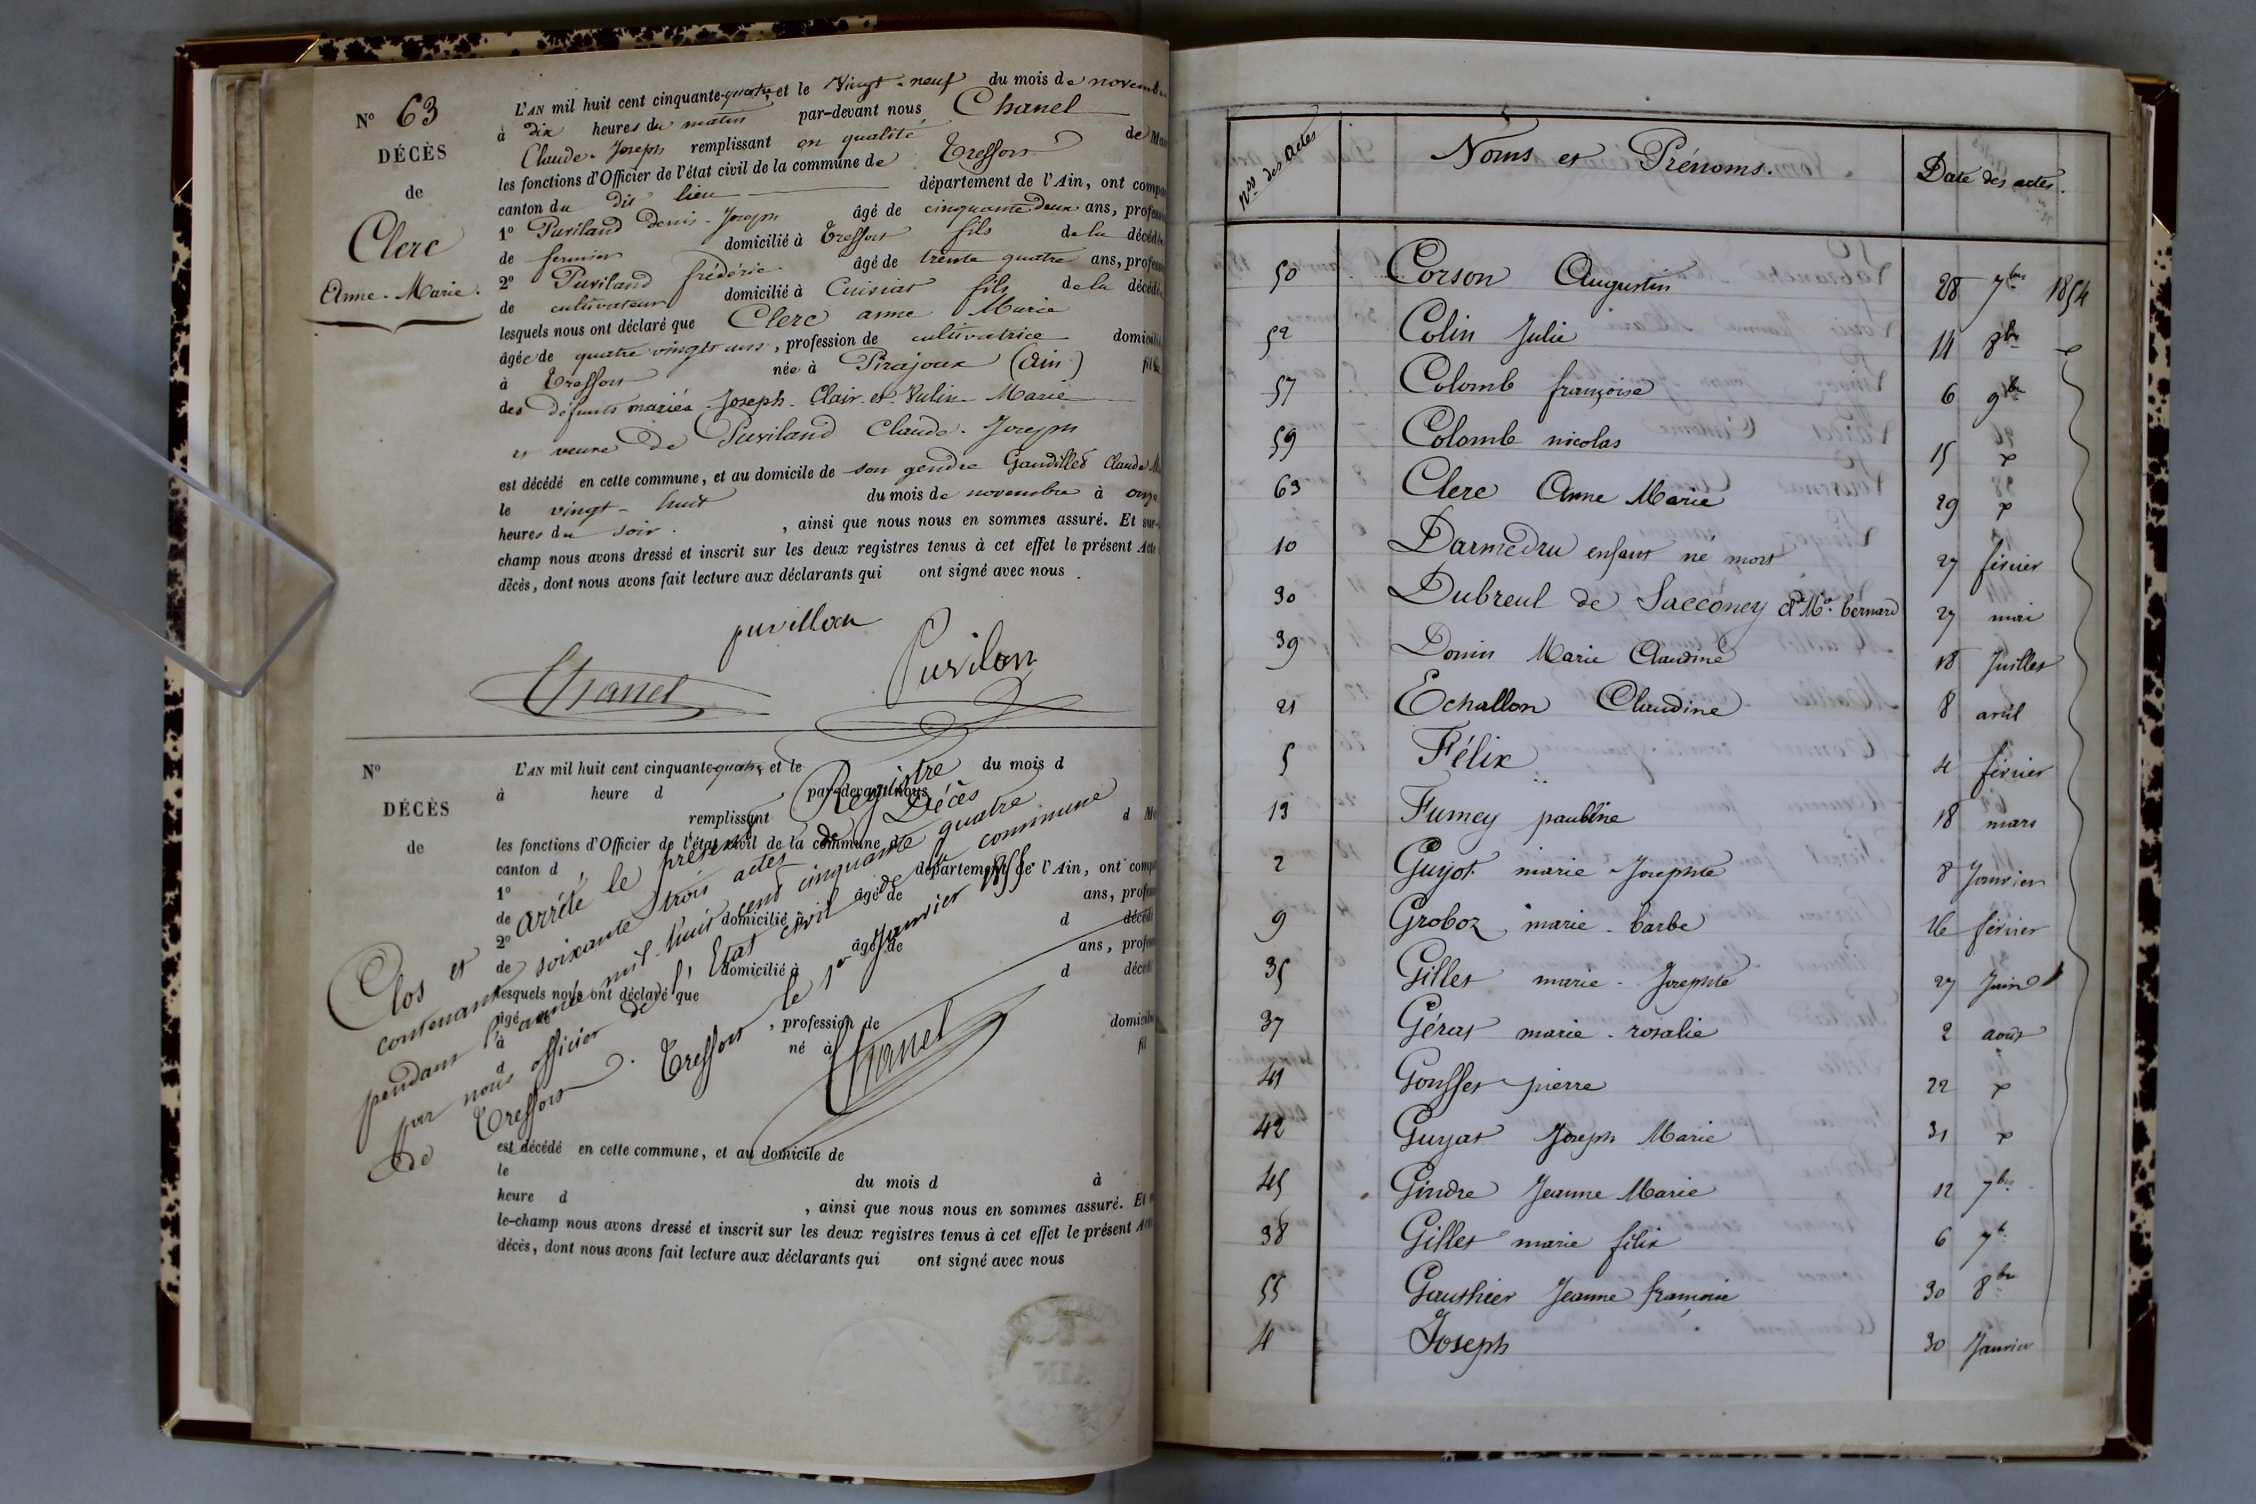 N° 63
DÉCÈS
de
Clerc
Anne-Marie.
L'AN mil huit cent cinquante-quatre, et le Vingt-neuf du mois de novembre
à dix heures du matin par-devant nous Chanel
Claude-Joseph remplissant en qualité de
les fonctions d'Officier de l'état civil de la commune de Treffort
canton du dit lieu département de l'Ain, ont
1° Puviland Denis-Joseph âgé de cinquante deux ans,
de fermier domicilié à Treffort fils de la
2° Puviland frédéric âgé de trente quatre ans,
de cultivateur domicilié à Cuisiat fils de la
lesquels nous ont déclaré que Clerc anne Marie
âgée de quatre vingts ans, profession de cultivatrice
à Treffort née à Pirajoux (Ain)
des défunts mariés Joseph Clair et Vulin Marie
et veuve de Puviland Claude-Joseph
est décédé en cette commune, et au domicile de son gendre Gaudillet Claude
le vingt-huit du mois de novembre à onze
heures du soir, ainsi que nous nous en sommes assuré. Et sur-
champ nous avons dressé et inscrit sur les deux registres tenus à cet effet le présent Acte
décès, dont nous avons fait lecture aux déclarants qui ont signé avec nous.
puvillan
Puvilan
Chanel
N°
DÉCÈS
de
L'AN mil huit cent cinquante-quatre, et le du mois d
à heure d par-devant nous
remplissant d
les fonctions d'Officier de l'état civil de la commune d
canton d département de l'Ain, ont
1° âgé de ans,
de domicilié à d
2° âgé de ans,
de domicilié à d
lesquels nous ont déclaré que
âgé de, profession de
à né à
d
Clos et arrêté le présent Registre
contenant soixante trois actes de Décès
pendant l'année mil-huit cent cinquante quatre
par nous officier de l'Etat civil de la commune
de Treffort. Treffort le 1er Janvier 1855
Chanel
est décédé en cette commune, et au domicile de
le du mois d à
heure d, ainsi que nous nous en sommes assuré. Et
le-champ nous avons dressé et inscrit sur les deux registres tenus à cet effet le présent Acte
décès, dont nous avons fait lecture aux déclarants qui ont signé avec nous
Nos des actes Noms et Prénoms. Date des actes.
50 Corson Augustin 28 7bre 1854
52 Colin Julie 14 8bre
57 Colomb françoise 6 9bre
59 Colomb nicolas 15
63 Clerc Anne Marie 29
10 Darmedru enfant né mort 27 février
30 Dubreul de Sacconey Cde Mie bernard 27 mai
39 Donin Marie Claudine 18 Juillet
21 Echallon Claudine 8 avril
5 Félix 4 février
13 Fumey pauline 18 mars
2 Guyot marie-Josephte 8 Janvier
9 Groboz marie-barbe 26 février
35 Gillet marie-Josephte 27 Juin
37 Gérat marie-rosalie 2 août
41 Gousset pierre 22
42 Guyat Joseph Marie 31
45 Gindre Jeanne Marie 12 7bre
38 Gillet marie félix 6 7b
55 Gauthier Jeanne françoise 30 8bre
4 Joseph 30 Janvier